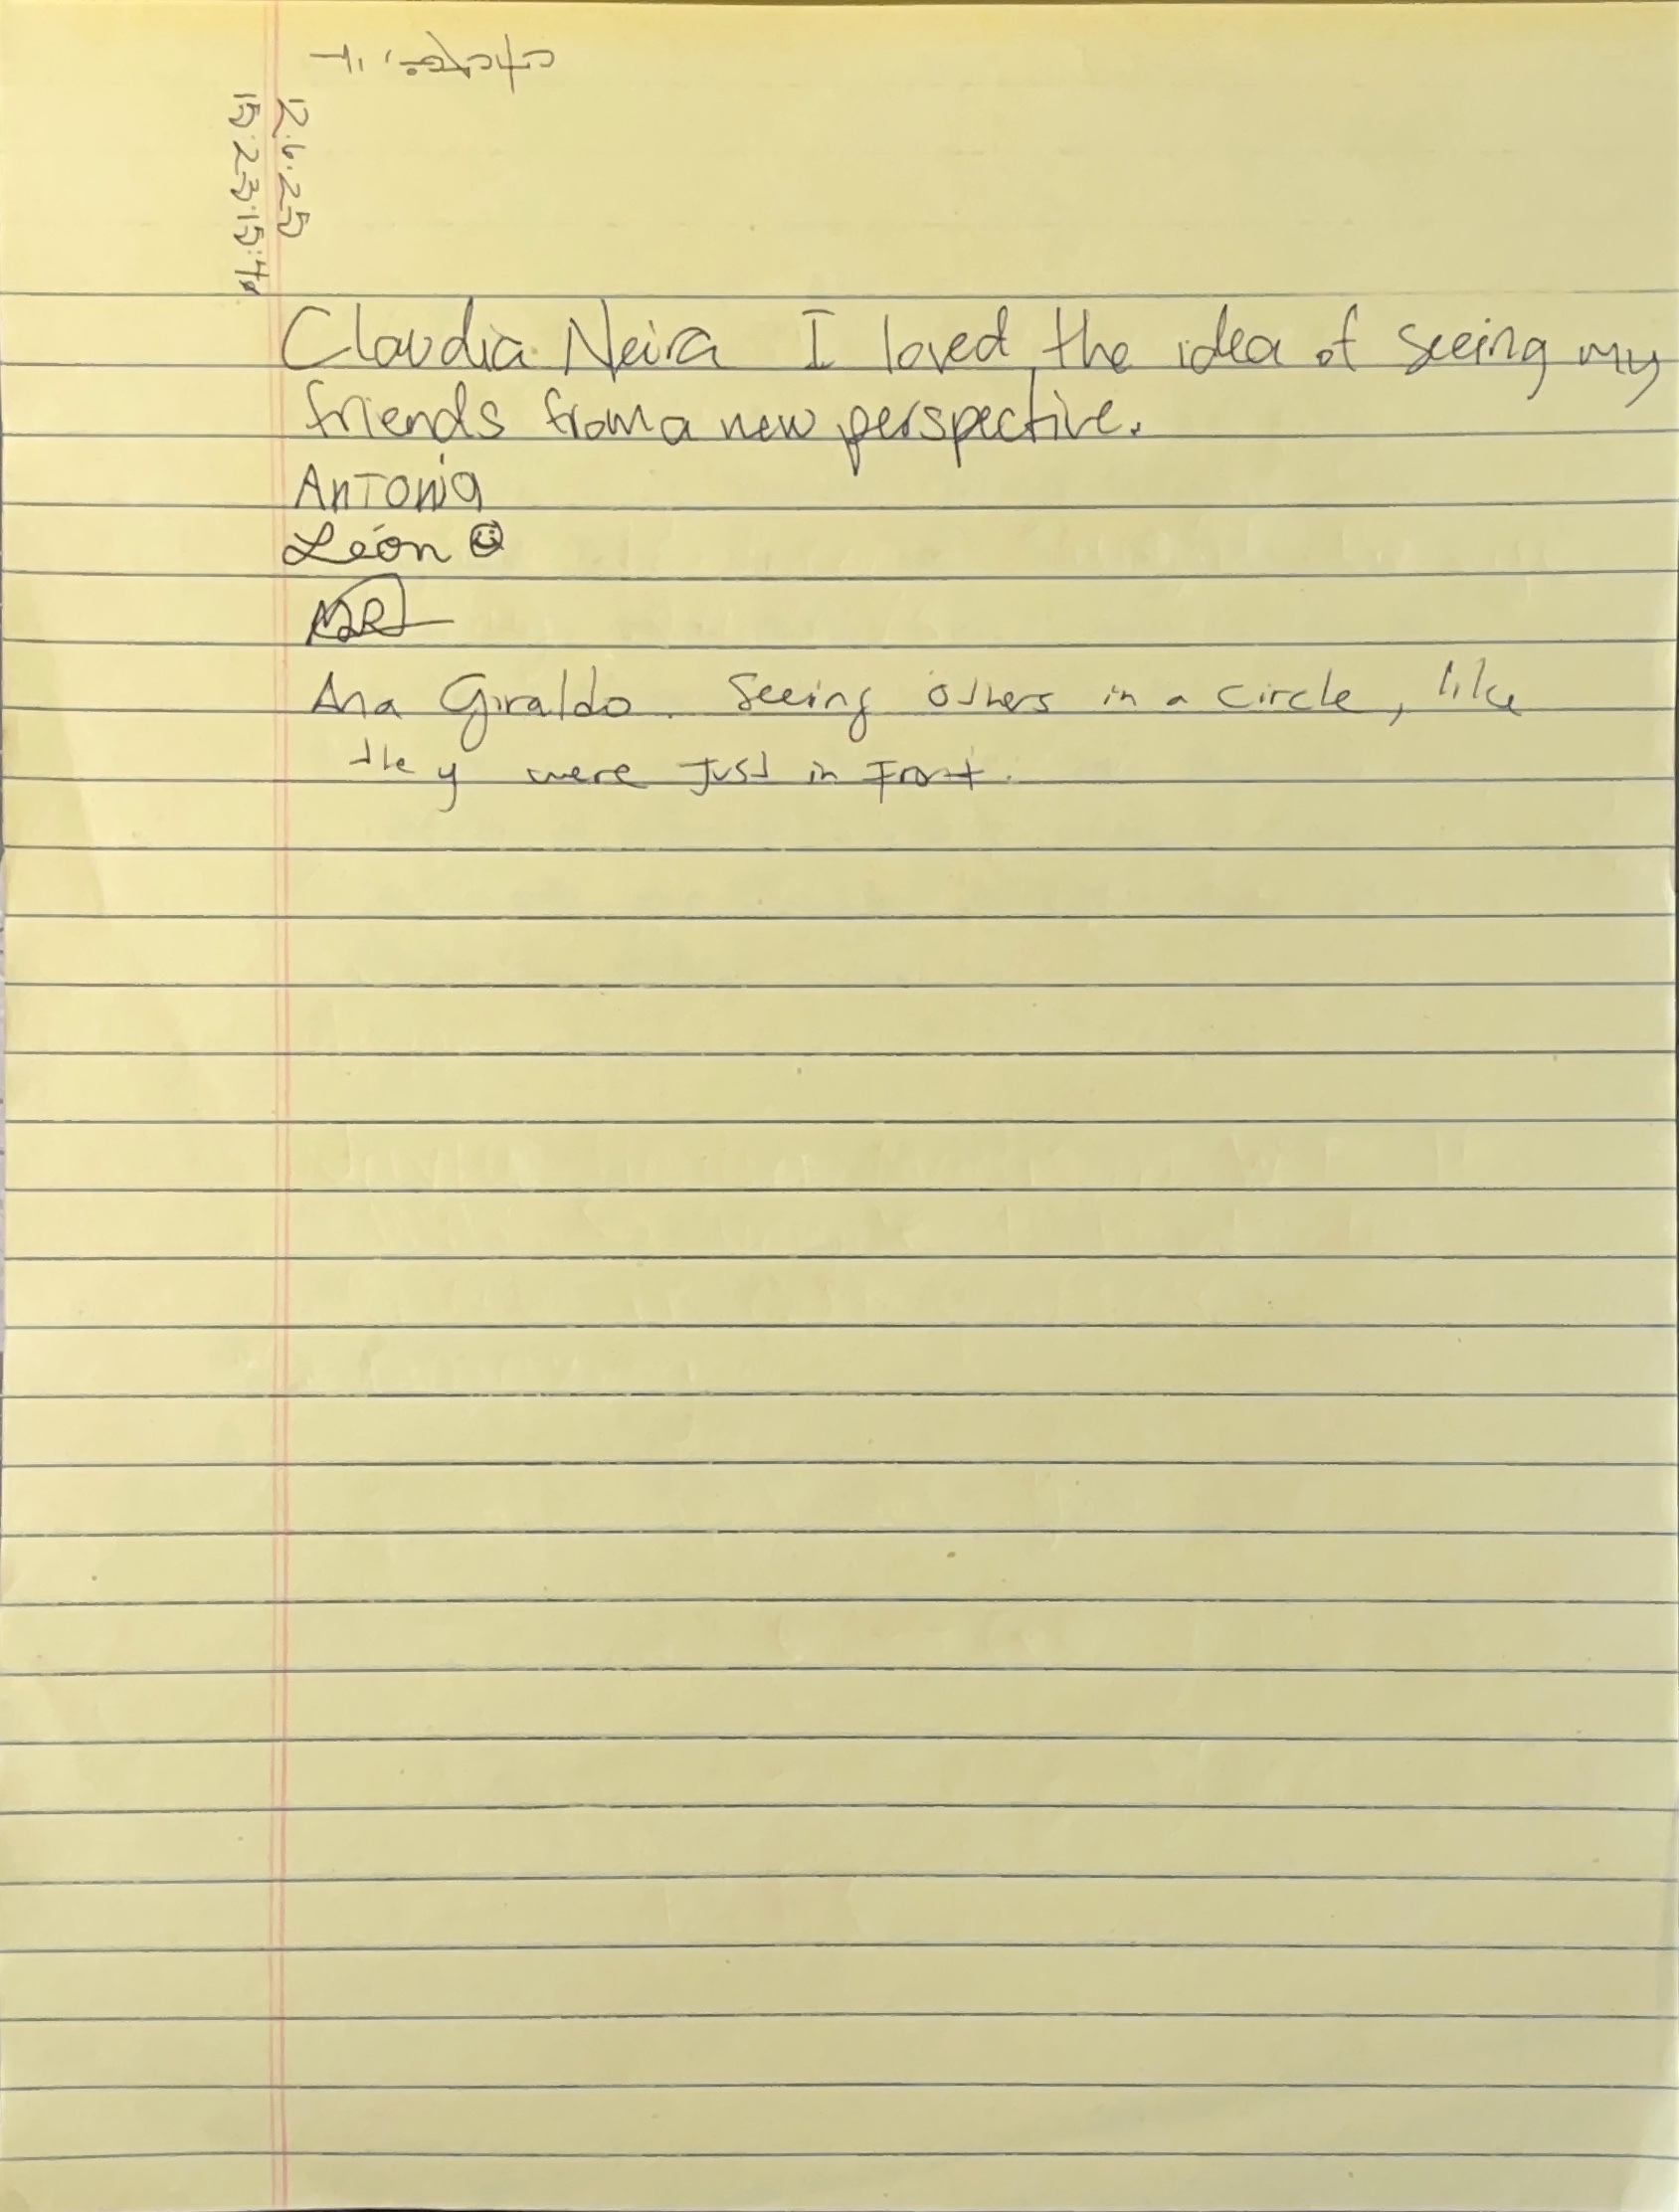 12.6.25
15:23.15:40
Claudia Neira I loved the idea of seeing my
friends from a new perspective.
Antonia
León
Ana Giraldo. Seeing others in a circle, like
they were just in front.